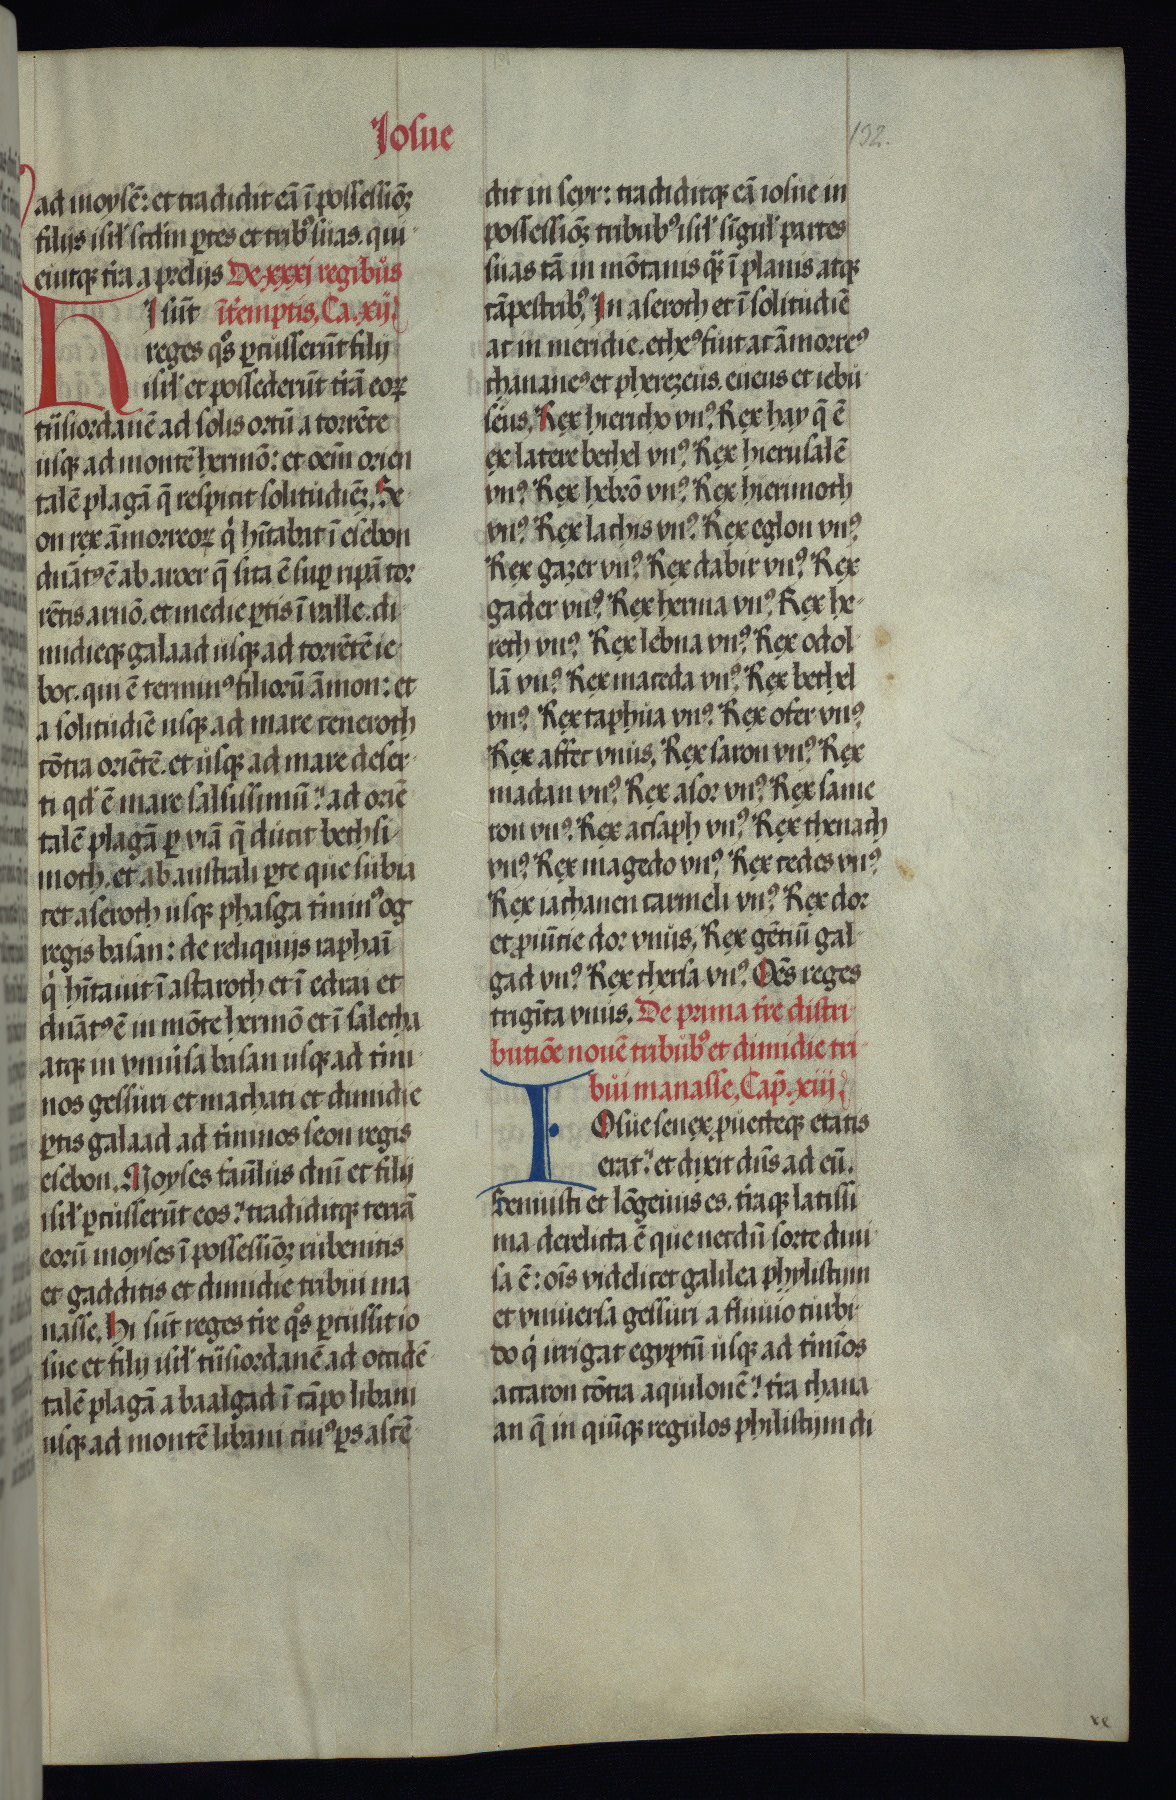 Iosue
192.
ad moysē: et tradidit eā ī possessiōꝫ
filijs isrl' scdm ꝑtes et tribꝰ suas. qui
euitqꝫ tīra a prelijs De xxxi regibus
HI sūt īt'emptis. Ca. xij.
reges q̊s ꝑcusserūt filij
isrl' et possederūt tīrā eoꝝ
tūsiordanē ad solis ortū a torrēte
usqꝫ ad montē hermō: et oēm orien
talē plagā q̄ respicit solitudiēꝫ. Se
on rex āmorreoꝝ q̇ hītabat ī esebon
dnāt᾽ē ab aroer q̄ sita ē suꝑ ripā tor
rētis arnō. et medie ꝑtis ī valle. di
midieqꝫ galaad usqꝫ ad torrētē ie
boc. qui ē terminꝰ filiorū āmon: et
a solitudiē usqꝫ ad mare ceneroth
cōtra oriētē. et usqꝫ ad mare deser
ti qd' ē mare salsissimū: ad oriē
talē plagā ꝑ viā q̄ ducit bethsi
moth. et ab australi ꝑte que subia
cet aseroth usqꝫ phasga t̄minꝰ og
regis basan: de reliquijs raphaī
q̇ hītauit ī astaroth et ī edrai et
dnāt᾽ē in mōte hermō et ī salecha
atqꝫ in vniūsa basan usqꝫ ad t̄mi
nos gessuri et machati et dimidie
ꝑtis galaad ad t̄minos seon regis
esebon. Moyses famulus dnī et filij
isrl' ꝑcusserūt eos: tradiditqꝫ terrā
eorū moyses ī possessiōꝫ rubenitis
et gadditis et dimidie tribui ma
nasse. Hi sūt reges tīre q̊s ꝑcussit io
sue et filij isrl' tūsiordanē ad occidē
talē plagā a baalgad ī cāpo libani
usqꝫ ad montē libani cuiꝰ ꝑs ascē
dit in seyr: tradiditqꝫ eā iosue in
possessiōꝫ tribubꝰ isrl' sīgul' partes
suas tā in mōtanis qꝫ ī planis atqꝫ
cāpestribꝰ. In aseroth et ī solitudiē
ac in meridie. etheꝰ fuit ac āmorreꝰ
chananeꝰ et pherezeus. eueus et iebu
seus. Rex hiericho vnꝰ. Rex hay q̄ ē
ex latere bethel vnꝰ. Rex hierusalē
vnꝰ. Rex hebrō vnꝰ. Rex hierimoth
vnꝰ. Rex lachis vnꝰ. Rex eglon vnꝰ.
Rex gazer vnꝰ. Rex dabir vnꝰ. Rex
gader vnꝰ. Rex herma vnꝰ. Rex he
reth vnꝰ. Rex lebna vnꝰ. Rex odol
lā vnꝰ. Rex maceda vnꝰ. Rex bethel
vnꝰ. Rex taphua vnꝰ. Rex ofer vnꝰ.
Rex affec vnus. Rex saron vnꝰ. Rex
madan vnꝰ. Rex asor vnꝰ. Rex same
ron vnꝰ. Rex acsaph vnꝰ. Rex thenach
vnꝰ. Rex magedo vnꝰ. Rex cedes vnꝰ.
Rex iachanen carmeli vnꝰ. Rex dor
et ꝓuīcie dor vnus. Rex gētiū gal
gad vnꝰ. Rex thersa vnꝰ. Oēs reges
trigīta vnus. De prima tīre distri
butiōe nouē tribubꝰ et dimidie tri
bui manasse. Cap̄. xiij.
IOsue senex ꝓuecteqꝫ etatis
erat: et dixit dn̄s ad eū.
Senuisti et lōgeuus es. tīraqꝫ latissi
ma derelicta ē que necdū sorte diui
sa ē: oīs videlicet galilea phylistijm
et vniuersa gessuri a fluuio turbi
do q̇ irrigat egyptū usqꝫ ad t̄mīos
accaron cōtra aquilonē: tīra chana
an q̄ in quīqꝫ regulos philistijm di